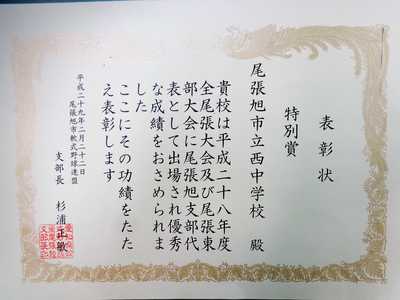 表彰状
特別賞
尾張旭市立西中学校 殿
貴校は平成二十八年度
全尾張大会及び尾張東
部大会に尾張旭支部代
表として出場され優秀
な成績をおさめられま
した
ここにその功績をたた
え表彰します
平成二十九年二月二十二日
尾張旭市軟式野球連盟
支部長 杉浦正敏